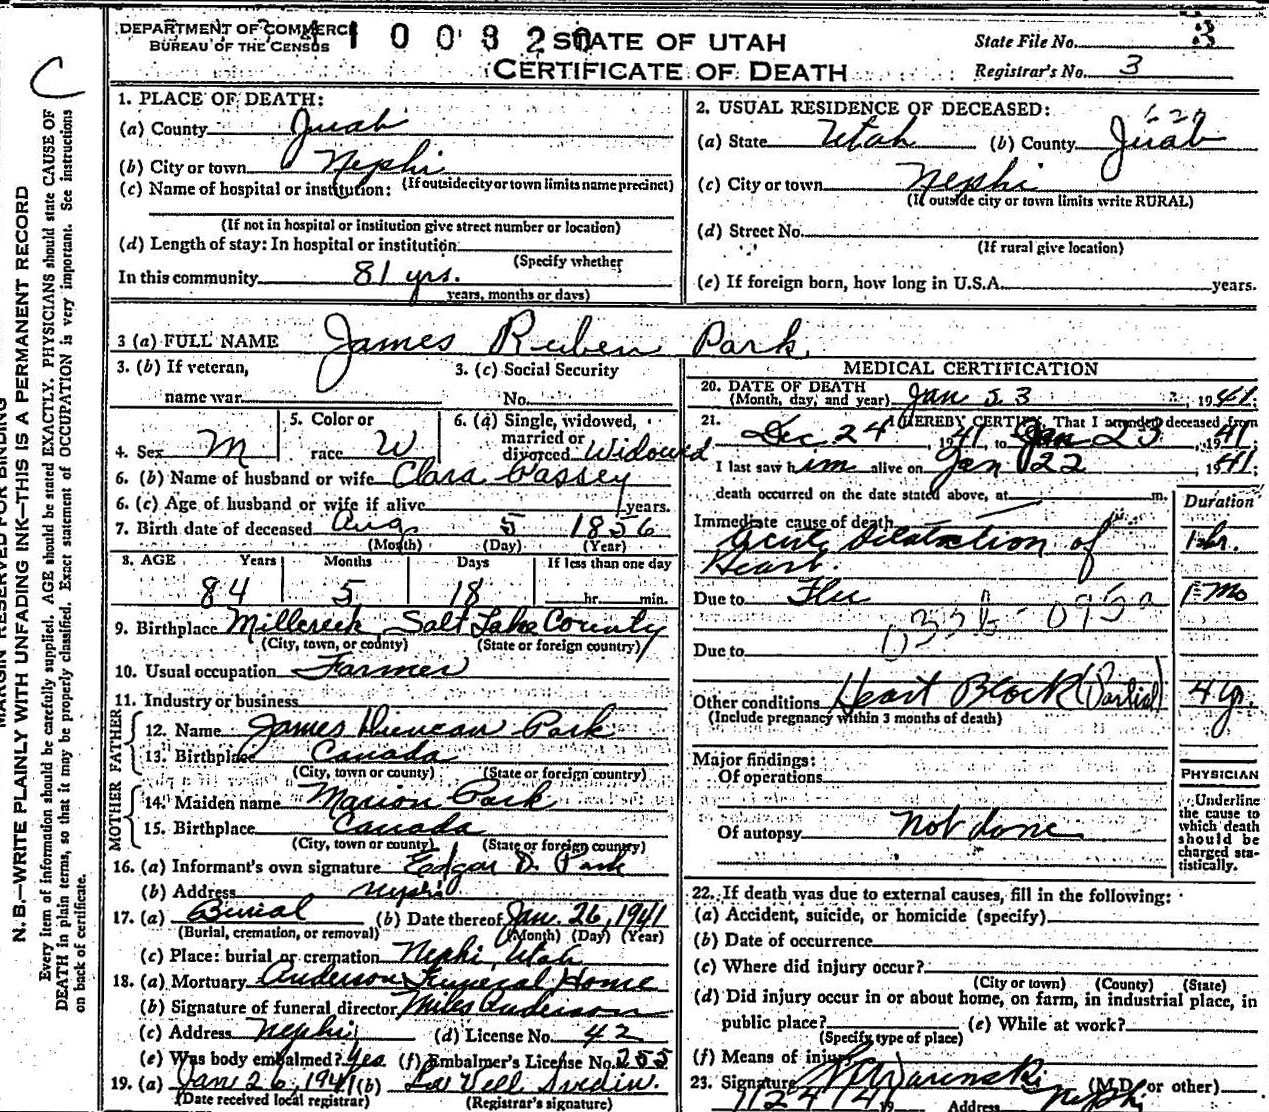 DEPARTMENT OF COMMERCE
BUREAU OF THE CENSUS
STATE OF UTAH
CERTIFICATE OF DEATH
State File No. 3
Registrar's No. 3
C
MARGIN RESERVED FOR BINDING
N. B.—WRITE PLAINLY WITH UNFADING INK—THIS IS A PERMANENT RECORD
Every item of information should be carefully supplied. AGE should be stated EXACTLY. PHYSICIANS should state CAUSE OF
DEATH in plain terms, so that it may be properly classified. Exact statement of OCCUPATION is very important. See instructions
on back of certificate.
1. PLACE OF DEATH:
(a) County Juab
(b) City or town Nephi
(If outside city or town limits name precinct)
(c) Name of hospital or institution:
(If not in hospital or institution give street number or location)
(d) Length of stay: In hospital or institution
(Specify whether
In this community 81 yrs.
years, months or days)
2. USUAL RESIDENCE OF DECEASED:
(a) State Utah (b) County Juab
(c) City or town Nephi
(If outside city or town limits write RURAL)
(d) Street No.
(If rural give location)
(e) If foreign born, how long in U.S.A. years.
3 (a) FULL NAME James Reuben Park
3. (b) If veteran,
name war
3. (c) Social Security
No.
4. Sex M
5. Color or
race W
6. (a) Single, widowed,
married or
divorced Widowed
6. (b) Name of husband or wife Clara
6. (c) Age of husband or wife if alive years.
7. Birth date of deceased Aug 5 1856
(Month) (Day) (Year)
8. AGE Years Months Days If less than one day
84 5 18 hr. min.
9. Birthplace Millcreek Salt Lake County
(City, town, or county) (State or foreign country)
10. Usual occupation Farmer
11. Industry or business
FATHER
12. Name James Duncan Park
13. Birthplace Canada
(City, town or county) (State or foreign country)
MOTHER
14. Maiden name Marion Park
15. Birthplace Canada
(City, town or county) (State or foreign country)
16. (a) Informant's own signature Edgar D. Park
(b) Address Nephi
17. (a) Burial (b) Date thereof Jan. 26, 1941
(Burial, cremation, or removal) (Month) (Day) (Year)
(c) Place: burial or cremation Nephi, Utah
18. (a) Mortuary Anderson Funeral Home
(b) Signature of funeral director Miles Anderson
(c) Address Nephi (d) License No. 42
(e) Was body embalmed? Yes (f) Embalmer's License No. 255
19. (a) Jan 26, 1941 (b)
(Date received local registrar) (Registrar's signature)
MEDICAL CERTIFICATION
20. DATE OF DEATH
(Month, day, and year) Jan 23, 1941
21. I HEREBY CERTIFY, That I attended deceased from
Dec 24 1941 to Jan 23, 1941
I last saw him alive on Jan 22, 1941
death occurred on the date stated above, at m.
Duration
Immediate cause of death
Acute Dilatation of
Heart. 1 hr.
Due to Flu 1 Mo
Due to
Other conditions Heart Block (Partial) 4 yr.
(Include pregnancy within 3 months of death)
Major findings:
Of operations
Of autopsy Not done
PHYSICIAN
Underline
the cause to
which death
should be
charged sta-
tistically.
22. If death was due to external causes, fill in the following:
(a) Accident, suicide, or homicide (specify)
(b) Date of occurrence
(c) Where did injury occur?
(City or town) (County) (State)
(d) Did injury occur in or about home, on farm, in industrial place, in
public place? (e) While at work?
(Specify type of place)
(f) Means of injury
23. Signature (M.D. or other)
Address Nephi